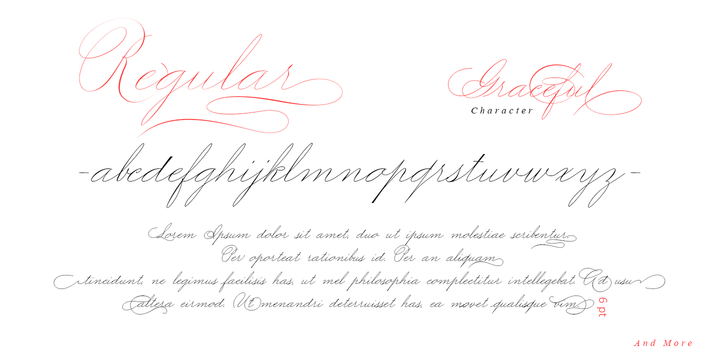 Regular
Graceful
Character
-abcdefghijklmnopqrstuvwxyz-
Lorem Ipsum dolor sit amet, duo ut ipsum molestiae scribentur
Per oporteat rationibus id. Per an aliquam
tincidunt, ne legimus facilisis has, ut mel philosophia complectitur intellegebat. Ad usu
altera eirmod. Ut menandri deterruisset has, ea movet qualisque vim
6 pt
And More